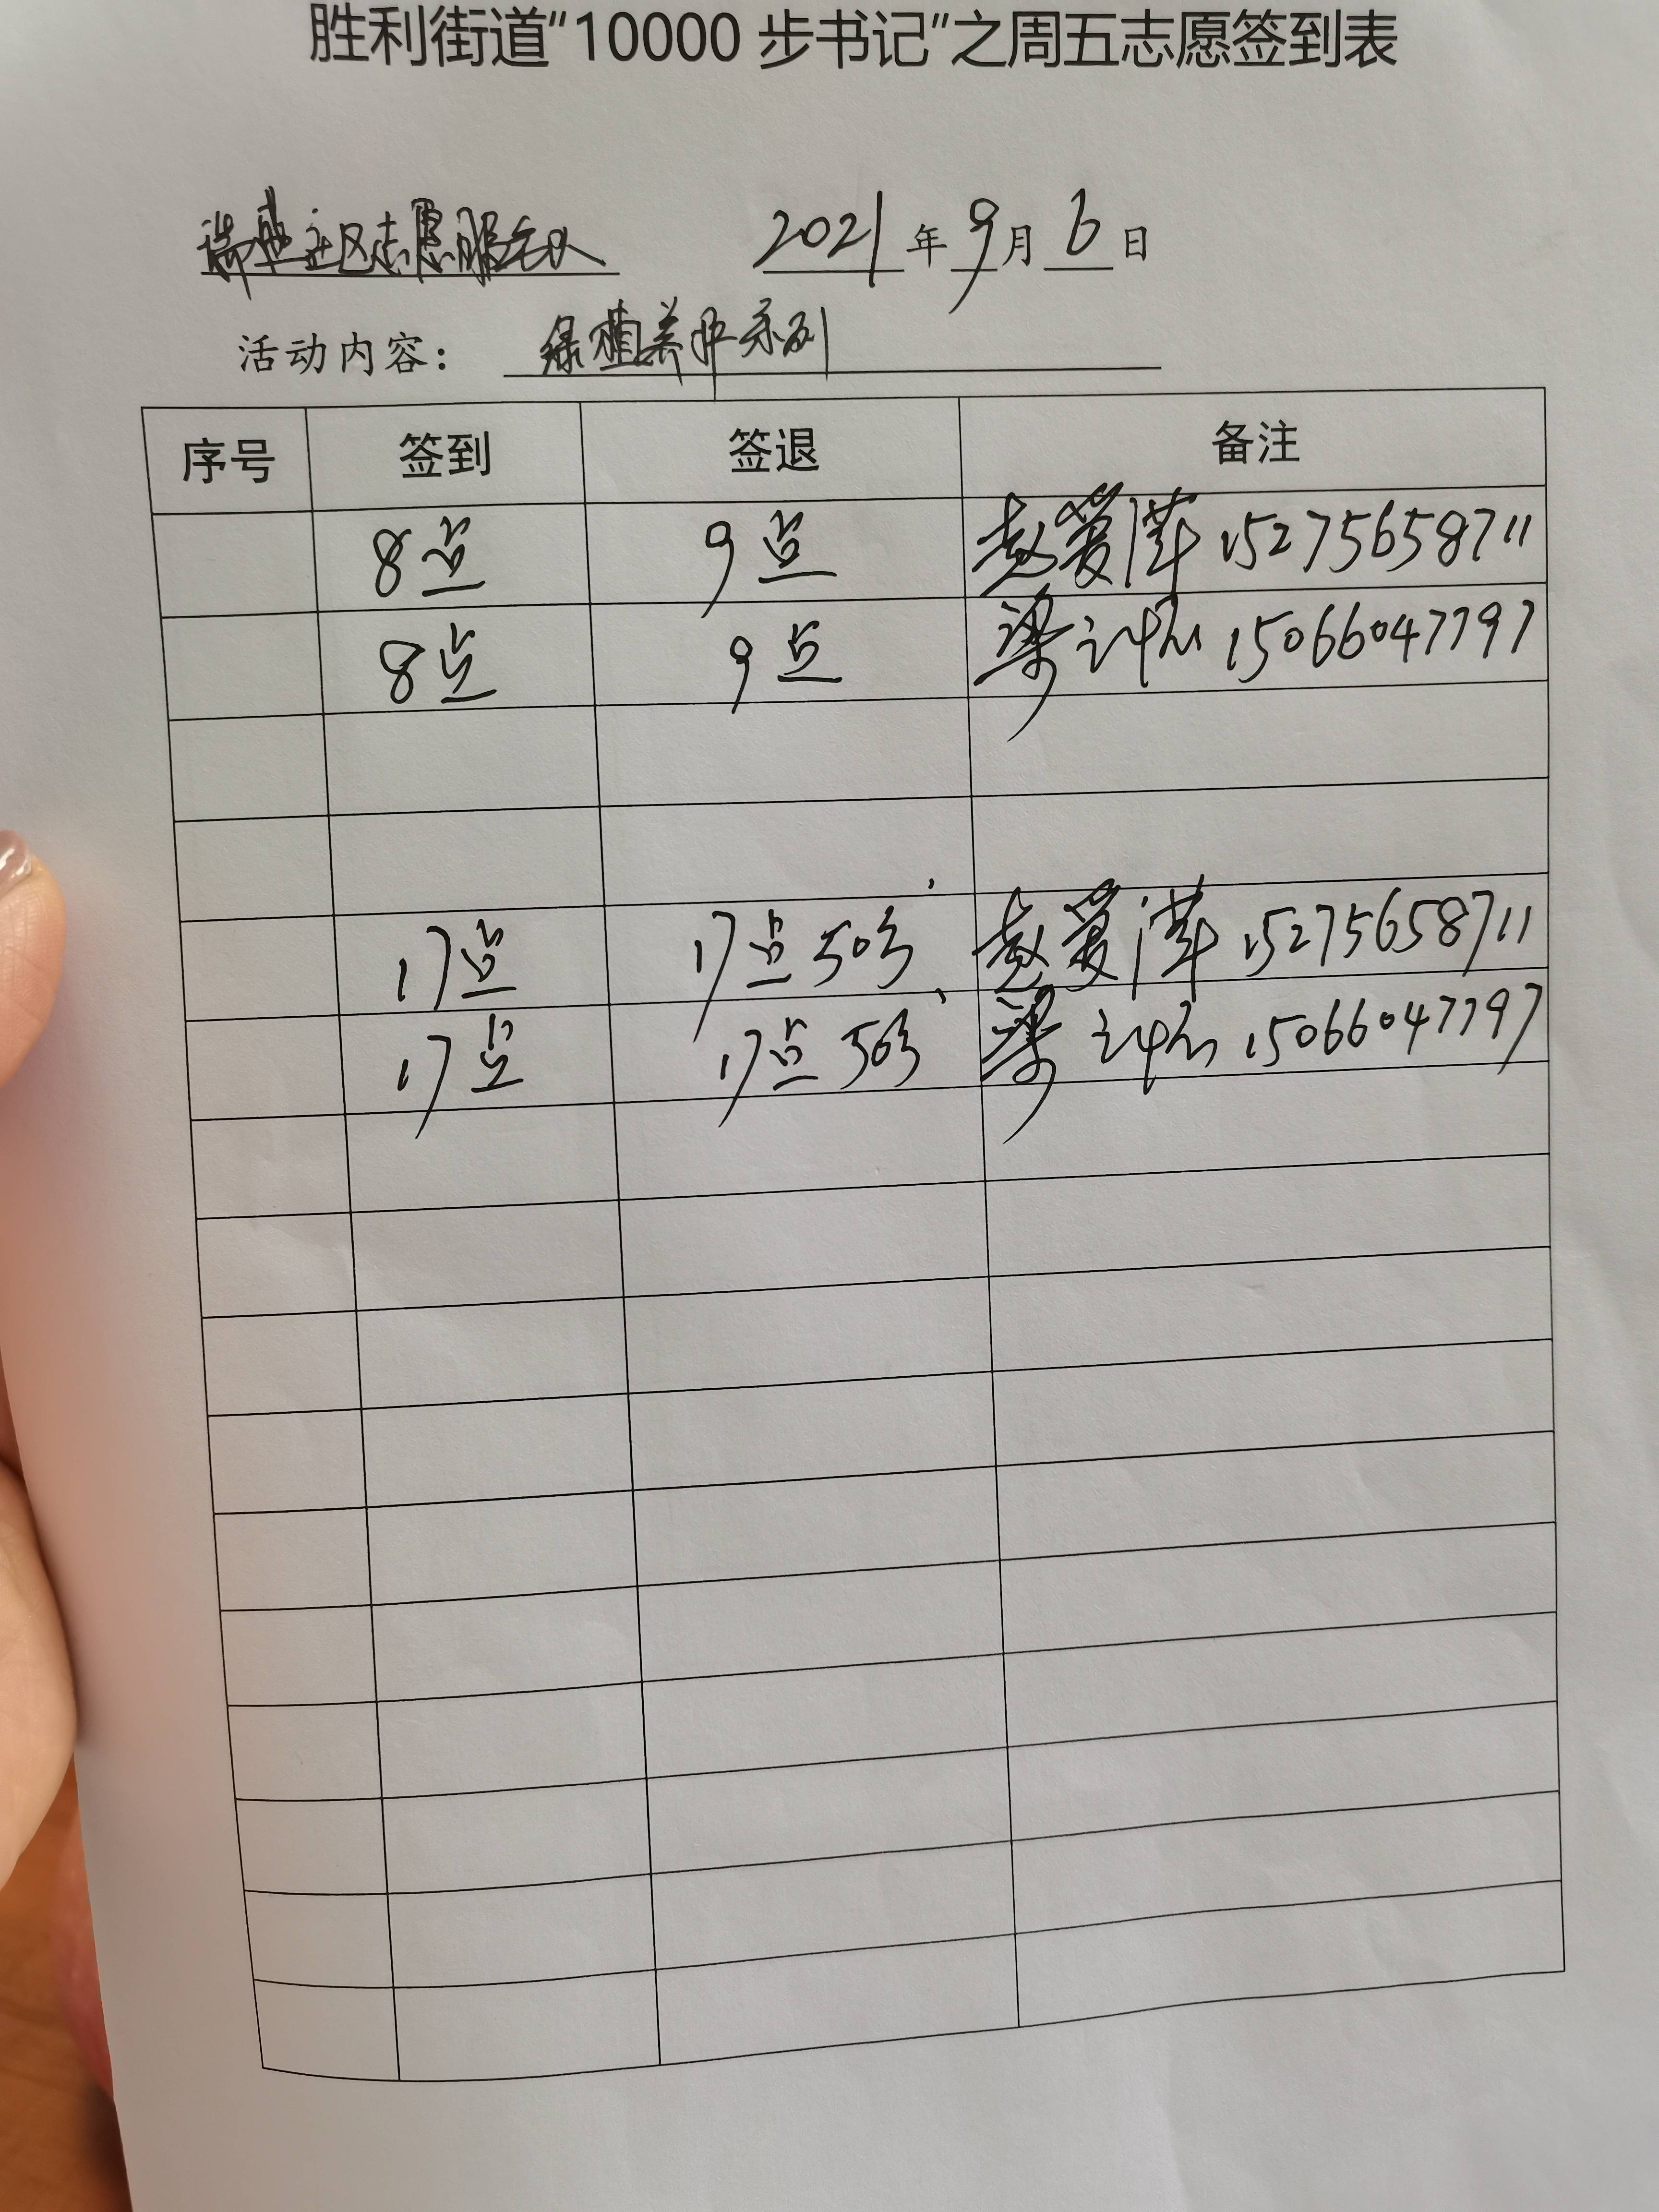 胜利街道“10000 步书记”之周五志愿签到表
社区志愿服务队 2021年9月6日
活动内容: 绿植养护系列
序号 签到 签退 备注
8点 9点 赵爱萍 15275658711
8点 9点 梁 15066047797
17点 17点50分 赵爱萍 15275658711
17点 17点50分 梁 15066047797